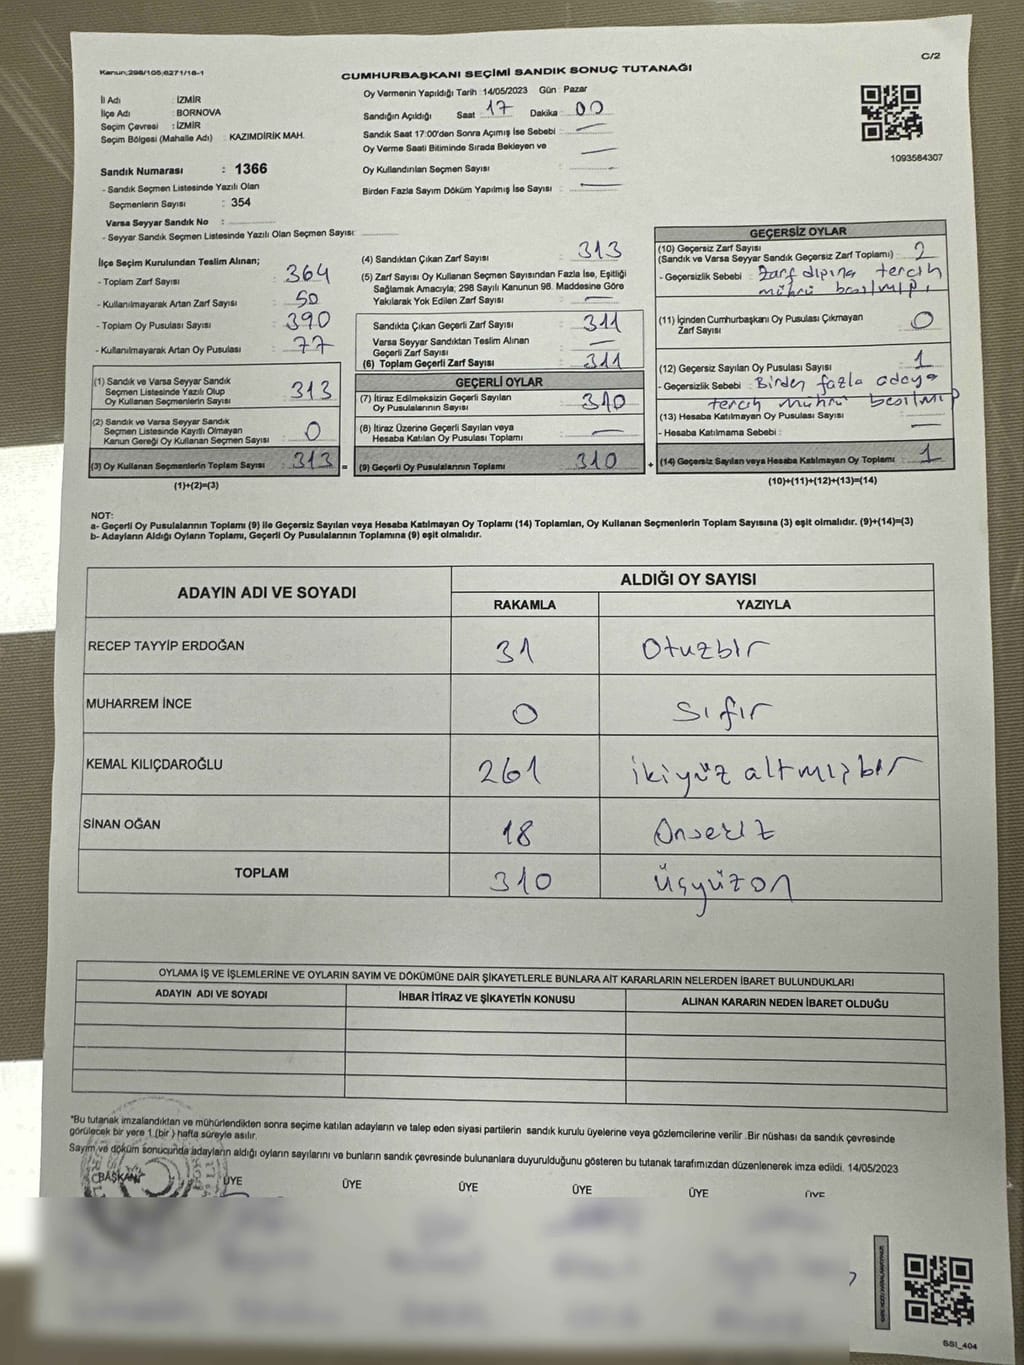 Kanun:298/105;6271/16-1
C/2
CUMHURBAŞKANI SEÇİMİ SANDIK SONUÇ TUTANAĞI
İl Adı : İZMİR
İlçe Adı : BORNOVA
Seçim Çevresi : İZMİR
Seçim Bölgesi (Mahalle Adı) : KAZIMDİRİK MAH.
Sandık Numarası : 1366
- Sandık Seçmen Listesinde Yazılı Olan
Seçmenlerin Sayısı : 354
Varsa Seyyar Sandık No :
- Seyyar Sandık Seçmen Listesinde Yazılı Olan Seçmen Sayısı:
Oy Vermenin Yapıldığı Tarih :14/05/2023 Gün : Pazar
Sandığın Açıldığı Saat 17 Dakika 00
Sandık Saat 17:00'den Sonra Açımış İse Sebebi : —
Oy Verme Saati Bitiminde Sırada Bekleyen ve
Oy Kullandırılan Seçmen Sayısı : —
Birden Fazla Sayım Döküm Yapılmış İse Sayısı : —
1093584307
İlçe Seçim Kurulundan Teslim Alınan;
- Toplam Zarf Sayısı : 364
- Kullanılmayarak Artan Zarf Sayısı : 50
- Toplam Oy Pusulası Sayısı : 390
- Kullanılmayarak Artan Oy Pusulası : 77
(1) Sandık ve Varsa Seyyar Sandık
Seçmen Listesinde Yazılı Olup
Oy Kullanan Seçmenlerin Sayısı : 313
(2) Sandık ve Varsa Seyyar Sandık
Seçmen Listesinde Kayıtlı Olmayan
Kanun Gereği Oy Kullanan Seçmen Sayısı : 0
(3) Oy Kullanan Seçmenlerin Toplam Sayısı : 313 =
(1)+(2)=(3)
(4) Sandıktan Çıkan Zarf Sayısı : 313
(5) Zarf Sayısı Oy Kullanan Seçmen Sayısından Fazla İse, Eşitliği
Sağlamak Amacıyla; 298 Sayılı Kanunun 98. Maddesine Göre
Yakılarak Yok Edilen Zarf Sayısı : —
Sandıkta Çıkan Geçerli Zarf Sayısı : 311
Varsa Seyyar Sandıktan Teslim Alınan
Geçerli Zarf Sayısı : —
(6) Toplam Geçerli Zarf Sayısı : 311
GEÇERLİ OYLAR
(7) İtiraz Edilmeksizin Geçerli Sayılan
Oy Pusulalarının Sayısı : 310
(8) İtiraz Üzerine Geçerli Sayılan veya
Hesaba Katılan Oy Pusulası Toplamı : —
(9) Geçerli Oy Pusulalarının Toplamı : 310 +
GEÇERSİZ OYLAR
(10) Geçersiz Zarf Sayısı
(Sandık ve Varsa Seyyar Sandık Geçersiz Zarf Toplamı) : 2
- Geçersizlik Sebebi : Zarf dışına tercih
mührü basılmış.
(11) İçinden Cumhurbaşkanı Oy Pusulası Çıkmayan
Zarf Sayısı : 0
(12) Geçersiz Sayılan Oy Pusulası Sayısı : 1
- Geçersizlik Sebebi : Birden fazla adaya
tercih mührü basılmış
(13) Hesaba Katılmayan Oy Pusulası Sayısı :
- Hesaba Katılmama Sebebi : —
(14) Geçersiz Sayılan veya Hesaba Katılmayan Oy Toplamı : 1
(10)+(11)+(12)+(13)=(14)
NOT:
a- Geçerli Oy Pusulalarının Toplamı (9) ile Geçersiz Sayılan veya Hesaba Katılmayan Oy Toplamı (14) Toplamları, Oy Kullanan Seçmenlerin Toplam Sayısına (3) eşit olmalıdır. (9)+(14)=(3)
b- Adayların Aldığı Oyların Toplamı, Geçerli Oy Pusulalarının Toplamına (9) eşit olmalıdır.
ADAYIN ADI VE SOYADI
ALDIĞI OY SAYISI
RAKAMLA YAZIYLA
RECEP TAYYİP ERDOĞAN 31 Otuzbir
MUHARREM İNCE 0 Sıfır
KEMAL KILIÇDAROĞLU 261 ikiyüz altmışbir
SİNAN OĞAN 18 Onsekiz
TOPLAM 310 Üçyüzon
OYLAMA İŞ VE İŞLEMLERİNE VE OYLARIN SAYIM VE DÖKÜMÜNE DAİR ŞİKAYETLERLE BUNLARA AİT KARARLARIN NELERDEN İBARET BULUNDUKLARI
ADAYIN ADI VE SOYADI İHBAR İTİRAZ VE ŞİKAYETİN KONUSU ALINAN KARARIN NEDEN İBARET OLDUĞU
"Bu tutanak imzalandıktan ve mühürlendikten sonra seçime katılan adayların ve talep eden siyasi partilerin sandık kurulu üyelerine veya gözlemcilerine verilir .Bir nüshası da sandık çevresinde
görülecek bir yere 1 (bir ) hafta süreyle asılır.
Sayım ve döküm sonucunda adayların aldığı oyların sayılarını ve bunların sandık çevresinde bulunanlara duyurulduğunu gösteren bu tutanak tarafımızdan düzenlenerek imza edildi. 14/05/2023
BAŞKAN ÜYE ÜYE ÜYE ÜYE ÜYE ÜYE
SSI_404